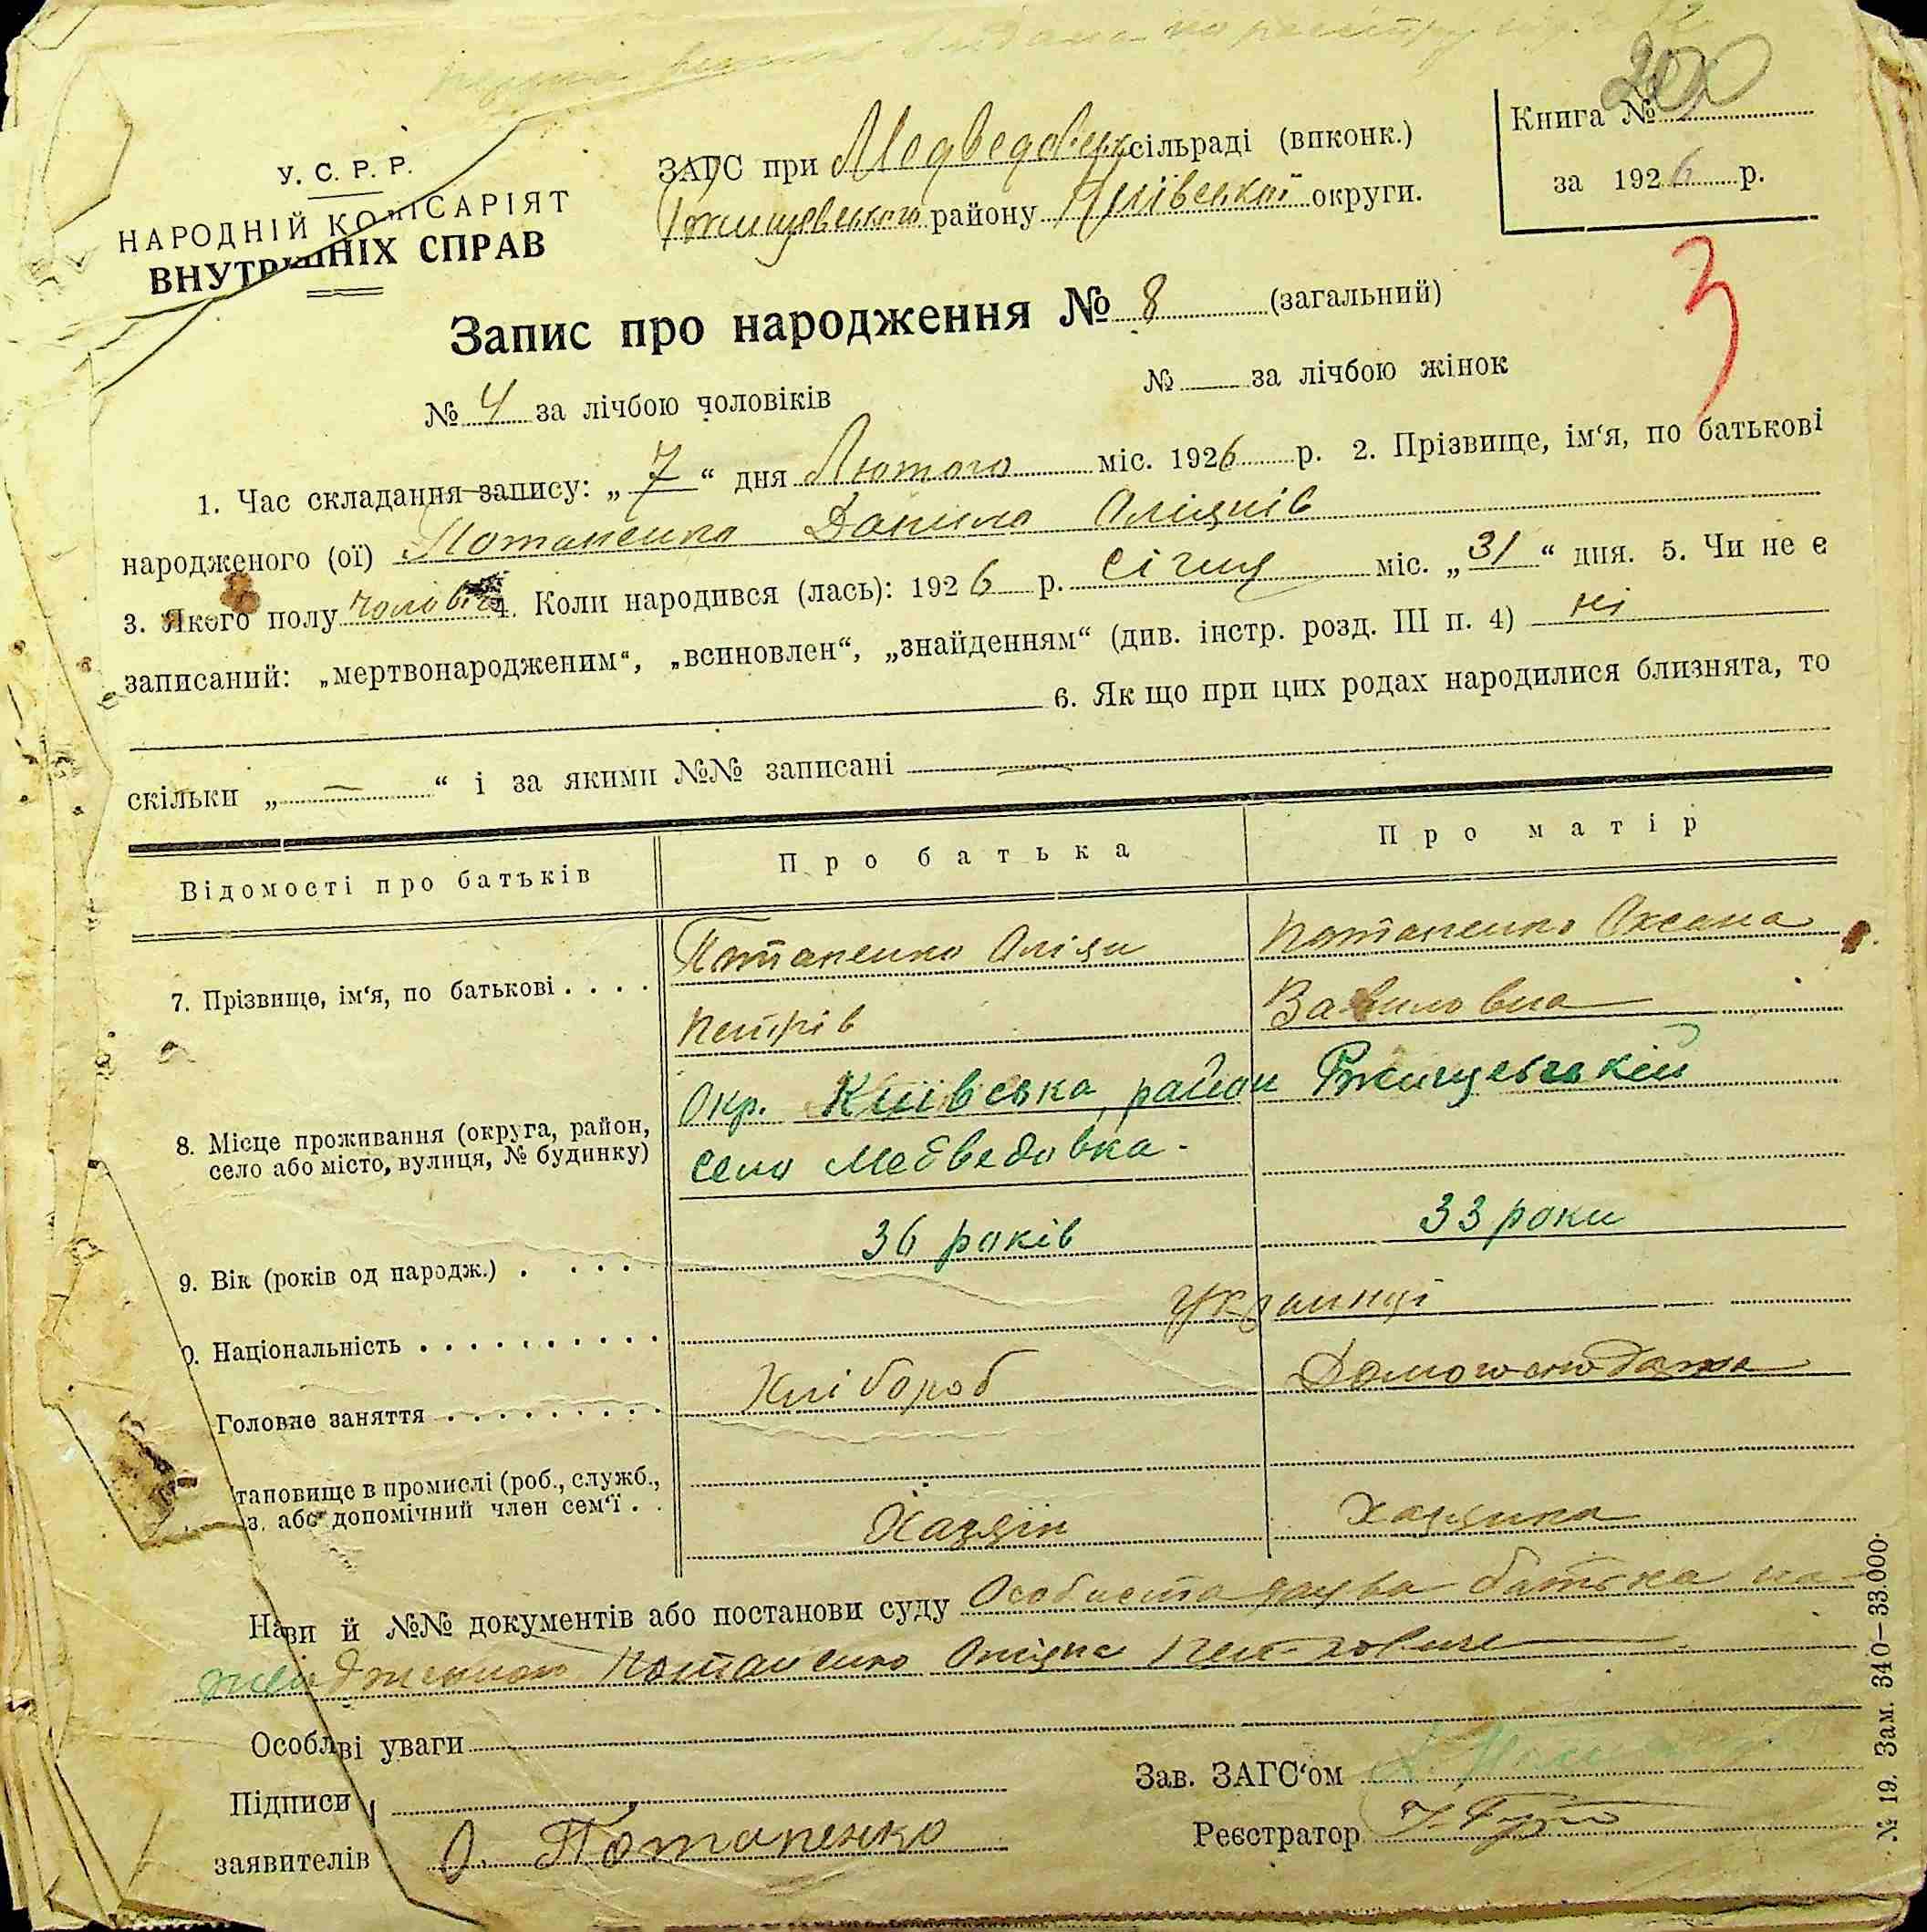 Книга № 200
за 1926 р.
У. С. Р. Р.
НАРОДНІЙ КОМІСАРІЯТ
ВНУТРІШНІХ СПРАВ
ЗАГС при Медведовск сільраді (виконк.)
Ржищевського району Київської округи.
3
Запис про народження № 8 (загальний)
№ 4 за лічбою чоловіків № за лічбою жінок
1. Час складання запису: „7“ дня Лютого міс. 1926 р. 2. Прізвище, ім‘я, по батькові
народженого (ої) Потапенко Данило Оліянів
3. Якого полу чоловіч 4. Коли народився (лась): 1926 р. січня міс. „31“ дня. 5. Чи не є
записаний: „мертвонародженим“, „всиновлен“, „знайденням“ (див. інстр. розд. III п. 4) ні
6. Як що при цих родах народилися близнята, то
скільки „—“ і за якими №№ записані —
Відомості про батьків Про батька Про матір
7. Прізвище, ім‘я, по батькові . . . . Потапенко Оліян Потапенко Оксана
Петрів Вавиловна
8. Місце проживання (округа, район, село або місто, вулиця, № будинку) Окр. Київська, район Ржищевський
село Медведовка -
9. Вік (років од народж.) . . . . . 36 років 33 роки
0. Національність . . . . . . . . . . Украинці
Головне заняття . . . . . . . . . Хлібороб Домогосподарка
тановище в промислі (роб., служб.,
з. або допомічний член сем‘ї . . Хазяїн хазяика
Нази й №№ документів або постанови суду Особиста заява батька
Потапенко Оліяна Петровича
Особлві уваги
Підписи
заявителів О. Потапенко
Зав. ЗАГС‘ом
Реєстратор
№ 19. Зам. 340–33.000.